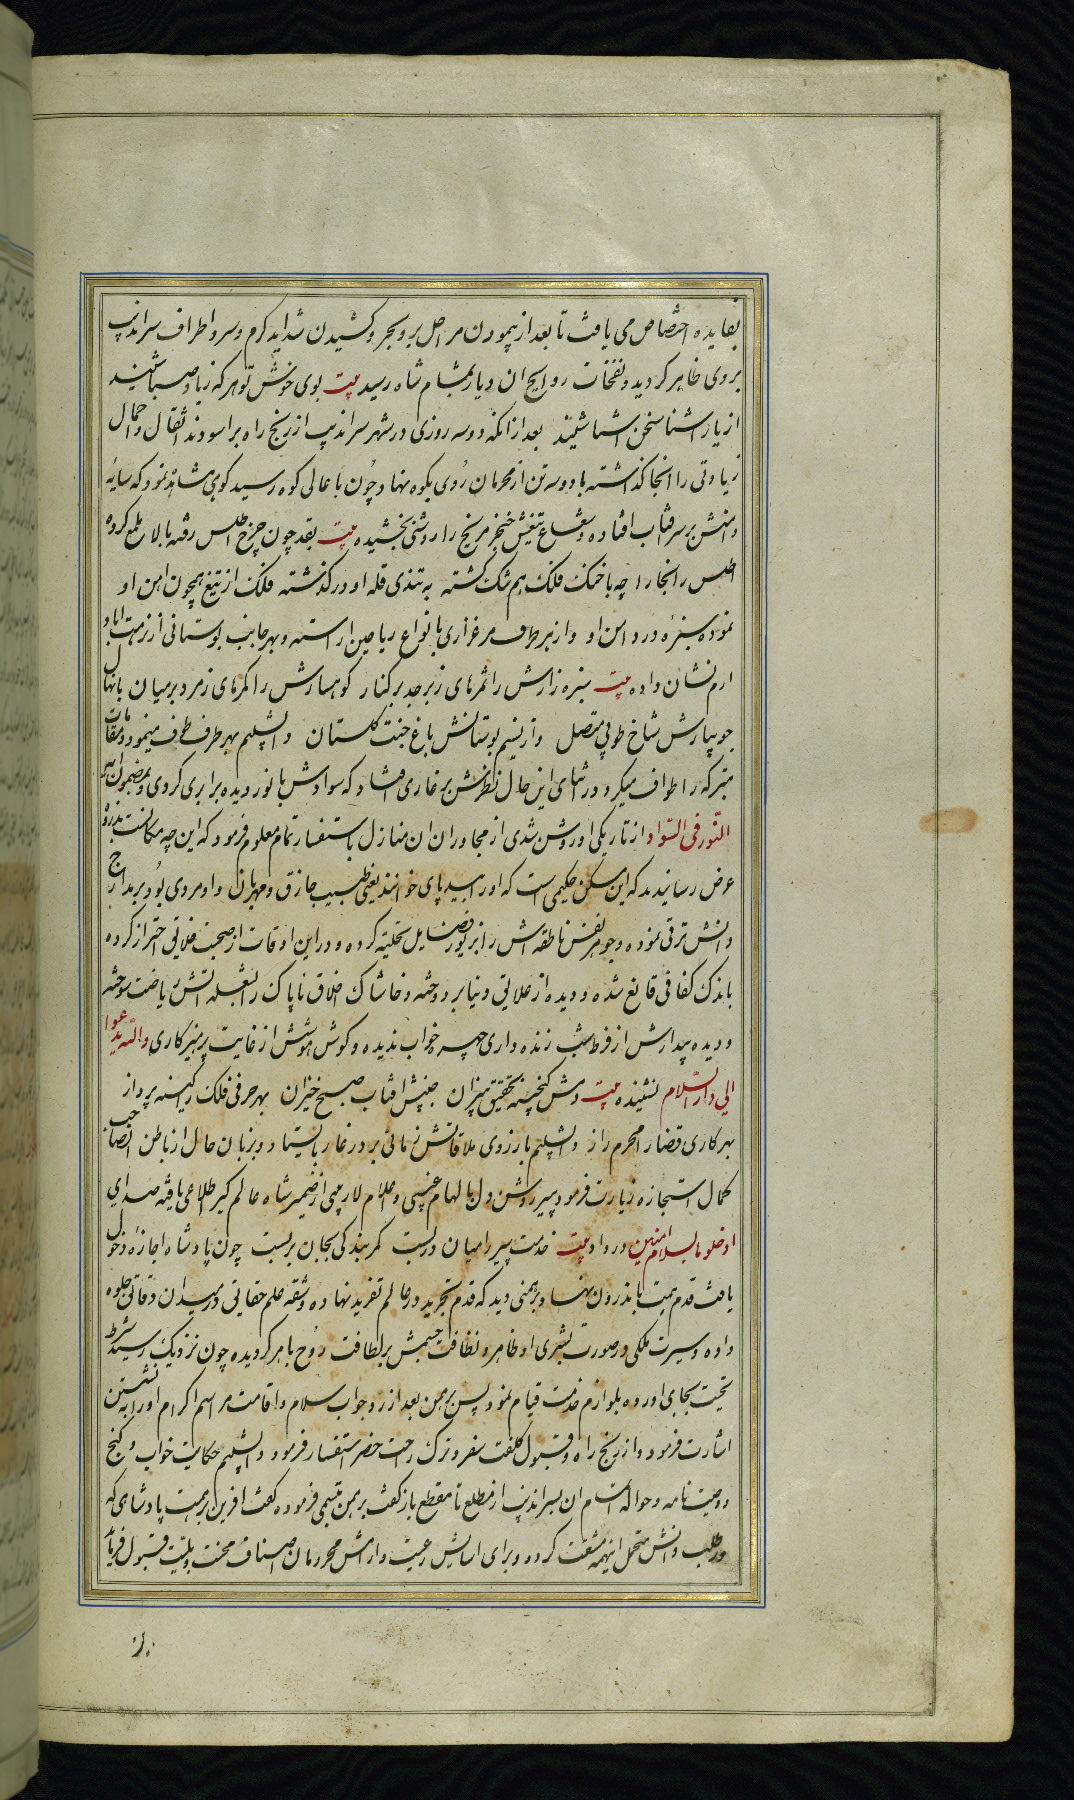 بفایده اختصاص می یافت تا بعد از پیمودن مراحل بر و بحر و کشیدن شداید گرم و سرد اطراف سراندیپ
بروی ظاهر کردید و نفحات روایح ان دیار بمشام شاه رسید بیت بوی خوش تو هر که ز باد صبا شنید
از یار اشنا سخن اشنا شنید بعد از انکه دو سه روزی در شهر سراندیپ از رنج راه براسودند اثقال و احمال
زیادتی را انجا گذاشته با دو سه تن از محرمان روی بکوه نهاد و چون باعالی کوه رسید کوهی مشاهده نمود که سایه
دامنش بر سر افتاب افتاده و شعاع تیغش خنجر مریخ را روشنی بخشیده بیت بقد چون چرخ اطلس رفته بالا ملمع کرده
اطلس را بخارا چه با خنک فلک هم تنک کشته به تندی قله او در گذشته فلک از تیغ همچون اهن او
نموده سبزه در دامن او و از هر طرف مرغزاری بانواع ریاحین اراسته و بهر جانب بوستانی از نزهت اباد
ارم نشان داده بیت سبزه زارش را ثمرهای زبرجد بر کنار کوهسارش را کمرهای زمرد بر میان با نهال
جویبارش شاخ طوبی متصل وز نسیم بوستانش باغ جنت گلستان دابشلیم بهر طرف طوف مینمود و مقامات
متبرکه را طواف میکرد در اثنای این حال نظرش بر غاری افتاد که سوادش با نور دیده برابری کردی و بمضمون ان سر
النور فی السواد از تاریکی او روشن شدی از مجاوران ان منازل باستفسار تمام معلوم فرمود که این چه مکانست بذروه
عرض رسانیدند که این مسکن حکیمی است که او را بیدپای خوانند یعنی طبیب حاذق و مهربان و او مردی بود بر مدارج
دانش ترقی نموده و جوهر نفس ناطقه اش را بزیور فضایل تحلیه کرده و در این اوقات از صحبت خلایق احتراز کرده
باندک کفافی قانع شده و دیده از علایق دنیا بر دوخته و خاشاک اخلاق ناپاک را بشعله اتش ریاضت سوخته
و دیده بیدارش از فرط شب زنده داری چهره خواب ندیده و کوش هوشش از غایت پرهیزکاری والله یدعوا
الی دار السلام نشنیده بیت دمش کنجینه تحقیق سازان جنبش افتاب صبح خیزان بهر حرفی فلک را کیسه پرداز
بهر کاری قضا را محرم راز دابشلیم بارزوی ملاقاتش زمانی بر در غار بایستاد و بزبان حال از باطن ان صاحب
کمال استجازه زیارت فرمود پیر روشن دل بالهام غیبی و اعلام لاریبی از ضمیر شاه عالم کیر اطلاعی یافته صدای
ادخلوها بسلام امنین در داد بیت خدمت پیر را میان دربست کمر بندکی بجان بربست چون پادشاه اجازه دخول
یافت قدم همت باندرون نهاد و برهمنی دید که قدم تجرید در عالم تفرید نهاده و شقه علم حقایق در میدان دقایق جلوه
داده و سیرت ملکی در صورت بشری او ظاهر و نظافت جسمش بر لطافت روح باهر کردیده چون نزدیک رسید شرط
تحیت بجای اورده بلوازم خدمت قیام نمود پس برهمن بعد از رد جواب سلام و اقامت مراسم اکرام او را به نشستن
اشارت فرمود و از رنج راه و قبول کلفت سفر و ترک راحت حضر استفسار فرمود دابشلیم حکایت خواب و کنج
و وصیت نامه و حواله تمام ان بسراندیپ از مطلع تا مقطع باز گفت برهمن تبسمی فرموده گفت افرین بر همت پادشای که
در طلب دانش متحمل اینهمه مشقت کردد و برای اسایش رعیت و ارامش محرومان اصناف محنت و بلیت قبول فرماید